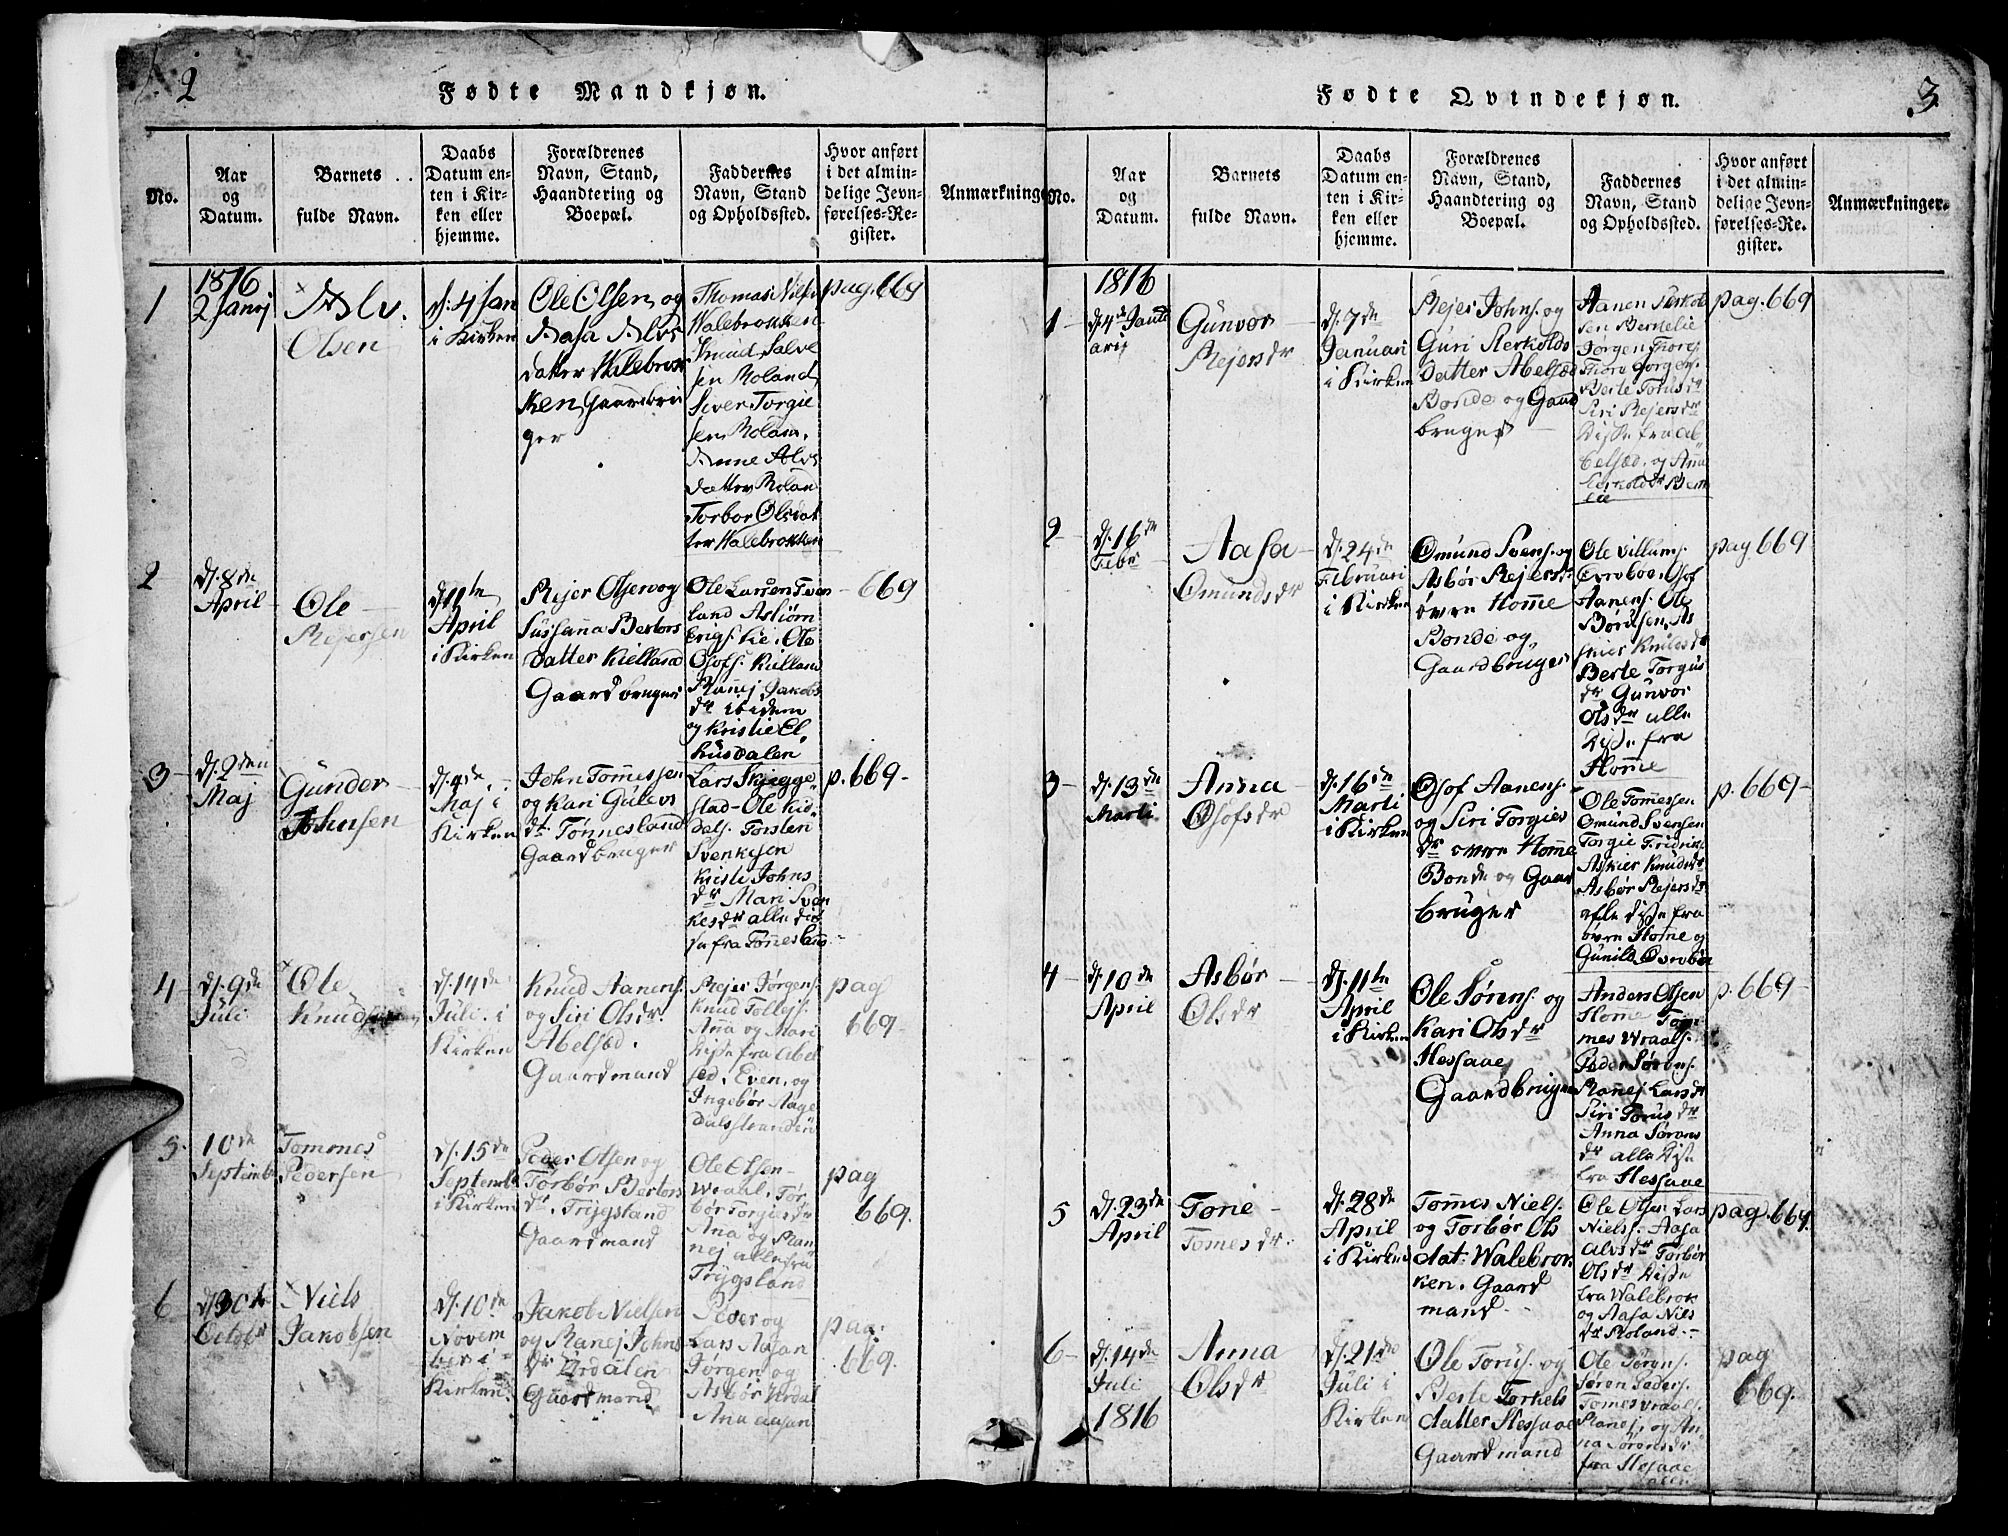 2
Fødte Mandkjøn.
No.
Aar
og
Datum.
Barnets
fulde Navn.
Daabs
Datum en-
ten i Kir-
ken eller
hjemme.
Forældrenes
Navn, Stand,
Haandtering og
Boepæl.
Faddernes
Navn, Stand
og Opholdssted.
Hvor anført
i det almin-
delige Jevn-
førelses-Re-
gister.
Anmærkninge
1
1816
2 Janrj
Alv.
Olsen
d. 4 Jan
i Kirken
Ole Olsen og
Aasa Alvs
datter Walebrok
ken Gaardbru
ger
Thomas Niels
Walebrokken
Knud Salve
sen Roland
Siver Torgie
sen Rolan.
Anne Alvs
datter Rolan
Torbor Olsdat
ter Walebrokken
pag. 669
2
d. 8de
April
Ole
Rejersen
d. 11te
April
i Kirken
Rejer Olsen og
Sussanna Bertors
datter Kielland
Gaardbruger
Ole Larsen Tven
land Asbiørn
Erigs. Lie. Ole
Osofs. Killand
Rannej Jakobs
dr ibidem
og Kristie El
husdalen
669
3
d. 2den
Maj
Gunder
Johnsen
d. 4de
Maj i
Kirken
John Tommessen
og Kari Gulevs
dt. Tønnesland
Gaardbruger
Lars Skjegge
stad - Ole Kid
dals. Torsten
Svenkesen
Kristi Johns
dr Mari Sven
kesdr alle dis
se fra Tønnesland
p. 669-
4
d. 9de
Juli
Ole
Knudsen
d. 14de
Juli. i
Kirken
Knud Aanens.
og Siri Olsdr
Abelsæd.
Gaardmand
Rejer Jørgens.
Knud Tollefs.
Anna og Mari
disse fra Abel
sed, Even, og
Ingebør Aage
dalsstranden
pag
669-
5.
10de
Septembr
Tommes
Pedersen
d. 15de
Septembr
i Kirken
Peder Olsen og
Torbør Bertors
dr. Trygsland
Gaardmand
Ole Olsen
Wraal. Tor
bør Torgiesdr
Ana og Ran
nej alle fra
Trygsland
pag
669.
6
d. 30te
Octobr
Niels
Jakobsen
d. 10de
Novem
ber i
Kirken.
Jakob Nielsen
og Ranej Johns
dr Urdalen
Gaardmand
Peder og
Lars Aasan
Jørgen og
Asbør Urdal
Ana Aasan
pag:
669.
3
Fødte Qvindekjøn.
No.
Aar
og
Datum.
Barnets
fulde Navn.
Daabs
Datum en-
ten i Kir-
ken eller
hjemme.
Forældrenes
Navn, Stand,
Haandtering og
Boepæl.
Faddernes
Navn, Stand
og Opholdssted.
Hvor anført
i det almin-
delige Jevn-
førelses-Re-
gister.
Anmærkninger.
1
1816
d. 4de Janu
arij
Gunvor
Rejersdr
d. 7de
Januari
i Kirken
Rejer Johns. og
Guri Aerkolds
datter Abelsæd
Bonde og Gaard
bruger
Aanen Aerkold
sen Berrelie
Jørgen Thores
Thore Jørgens.
Berte Torusdr
Siri Rejersdr
disse fra A
belsæd. og Anna
Aerkoldsdr Berre
lie
pag. 669
2
d. 16de
Febr
Aasa
Omundsdr
d. 24de
Februari
i Kirken
Omund Svens. og
Asbør Rejersdr
øvre Homme
Bonde og
Gaardbruger
Ole Villums.
Øvrobøe. Osof
Aanens. Ole
Børilsen. As
kier Knudsdr
Berte Torgus
dr Gunvor
Olsdr alle
disse fra
Homme
pag 669
3
d. 13de
Marti
Anna
Osofsdr
d. 16de
Marti
i Kirken
Osof Aanens.
og Siri Torgies
dr øvre Homme
Bonde og Gaar
bruger
Ole Tommessen
Omund Svensen
Torgie Fredrik
Askier Knudsdr
Asbør Rejersdr
alle disse fra
øvre Homme og
Gunild Øvrobøe
p. 669-
4
d. 10de
April
Asbør
Olsdr
d. 11te
April
i Kirken
Ole Sørens. og
Kari Olsdr
Hessaae
Gaardbruger
Anders Olsen
Home Tom
mes Wraals.
Peder Sørens.
Ranej Larsdr
Siri Torusdr
Anna Sørens
dr alle disse
fra Hessaae
p. 669-
5
d. 23de
April
Tone
Tomesdr
d. 28de
April
i Kirken
Tommes Niels.
og Torbør Ols
dat. Walebrok
ken. Gaard
mand
Ole Olsen Lars
Niels. Aasa
Alvsdr Torbør
Olsdr disse
fra Walebrok
og Aasa Niels
dr Roland
pag. 669.
6
d. 14de
Juli
1816
Anna
Olsdr
d. 21de
Juli i
Kirken
Ole Torus. og
Berte Torkels
datter Hessaae
Gaardmand
Ole Sørens.
Søren Peders.
Tomes Wraals.
Ranej. og An
na Sørensdr
fra Hessaae
pag
669.